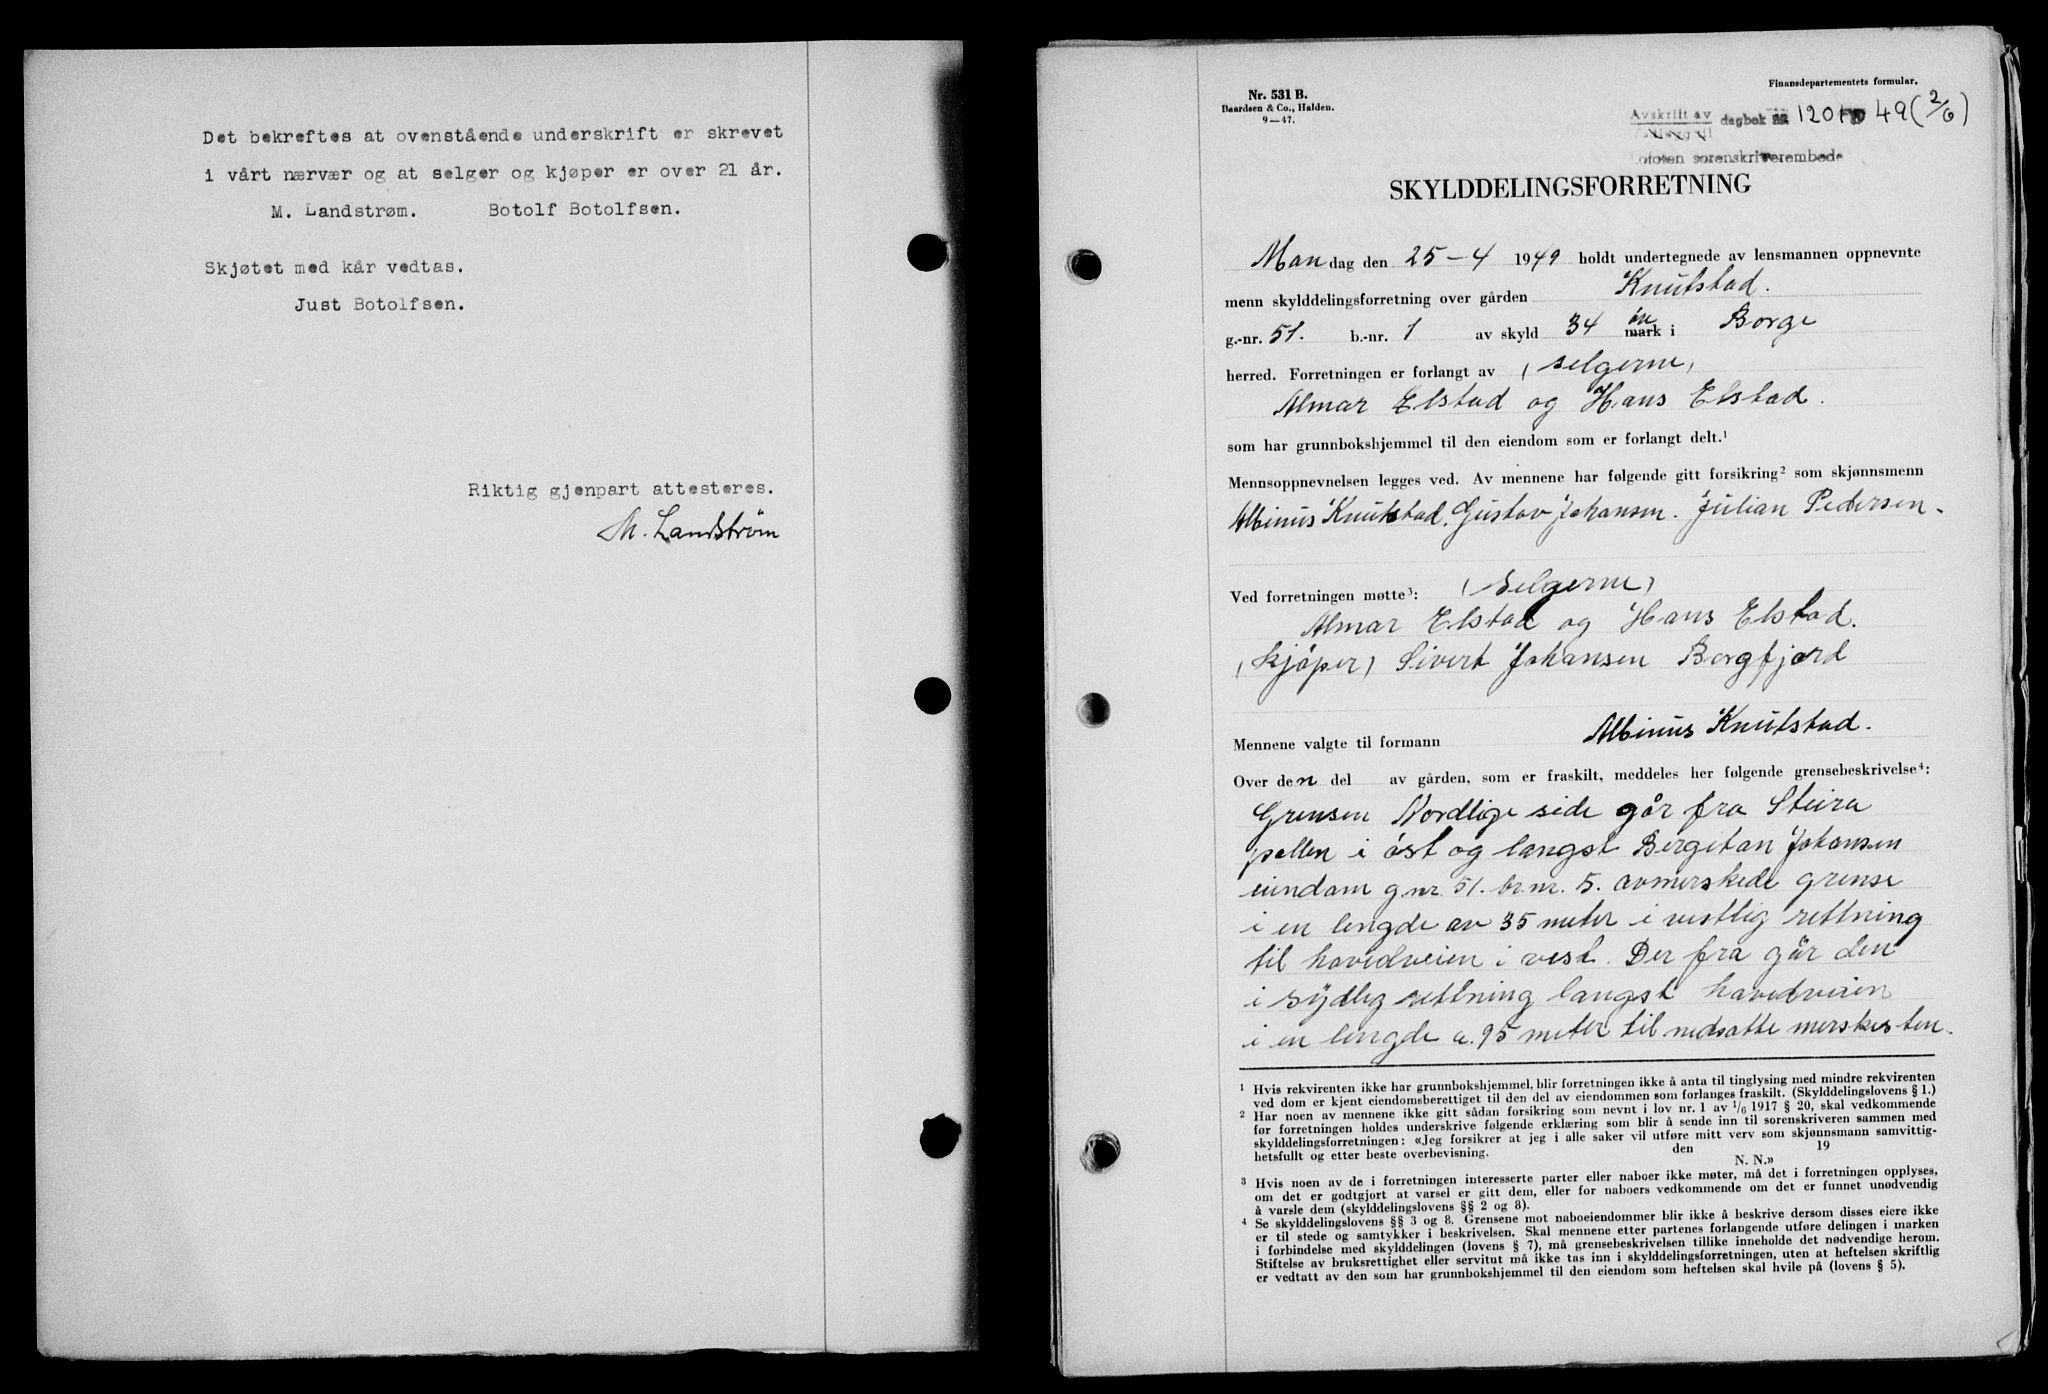 Det bekreftes at ovenstående underskrift er skrevet
i vårt nærvær og at selger og kjøper er over 21 år.
M. Landstrøm. Botolf Botolfsen.
Skjøtet med kår vedtas.
Just Botolfsen.
Riktig gjenpart attesteres.
M. Landstrøm
Nr. 531 B.
Baardsen & Co., Halden.
9—47.
Finansdepartementets formular.
Avskrift av
dagbok nr 1201 49 (2/6)
Lofoten sorenskriverembede
SKYLDDELINGSFORRETNING
Mandag den 25-4 1949 holdt undertegnede av lensmannen oppnevnte
menn skylddelingsforretning over gården Knutstad.
g.-nr. 51. b.-nr. 1 av skyld 34 øre mark i Borge
herred. Forretningen er forlangt av (selgerne)
Almar Elstad og Hans Elstad.
som har grunnbokshjemmel til den eiendom som er forlangt delt.¹
Mennsoppnevnelsen legges ved. Av mennene har følgende gitt forsikring² som skjønnsmenn
Albinus Knutstad. Gustav Johansen. Julian Pedersen.
Ved forretningen møtte³: (selgerne)
Almar Elstad og Hans Elstad.
(kjöper) Sivert Johansen Borgfjord
Mennene valgte til formann Albinus Knutstad.
Over den del av gården, som er fraskilt, meddeles her følgende grensebeskrivelse⁴:
Grensen Nordlige side går fra Steira
pollen i öst og langst Bergitan Johansen
eiendom g.nr. 51. br.nr. 5. avmerskede grense
i en lengde av 35 meter i vestlig rettning
til havedveien i vest. Der fra går den
i sydlig rettning langst havedveien
i en lengde a. 95 meter til nedsatte merskesten.
¹ Hvis rekvirenten ikke har grunnbokshjemmel, blir forretningen ikke å anta til tinglysing med mindre rekvirenten
ved dom er kjent eiendomsberettiget til den del av eiendommen som forlanges fraskilt. (Skylddelingslovens § 1.)
² Har noen av mennene ikke gitt sådan forsikring som nevnt i lov nr. 1 av 1/6 1917 § 20, skal vedkommende
før forretningen holdes underskrive følgende erklæring som blir å sende inn til sorenskriveren sammen med
skylddelingsforretningen: «Jeg forsikrer at jeg i alle saker vil utføre mitt verv som skjønnsmann samvittig-
hetsfullt og etter beste overbevisning. den 19
N. N.»
³ Hvis noen av de i forretningen interesserte parter eller naboer ikke møter, må det i forretningen opplyses,
om det er godtgjort at varsel er gitt dem, eller for naboers vedkommende om det er funnet unødvendig
å varsle dem (skylddelingslovens §§ 2 og 8).
⁴ Se skylddelingslovens §§ 3 og 8. Grensene mot naboeiendommer blir ikke å beskrive dersom disses eiere ikke
er til stede og samtykker i beskrivelsen. Skal mennene etter partenes forlangende utføre delingen i marken
i forbindelse med skylddelingen (lovens § 7), må grensebeskrivelsen tillike inneholde det nødvendige herom.
Stiftelse av bruksrettighet eller servitut må ikke tas inn i skylddelingsforretningen, uten at heftelsen skriftlig
er vedtatt av den som har grunnbokshjemmel til den eiendom som heftelsen skal hvile på (lovens § 5).